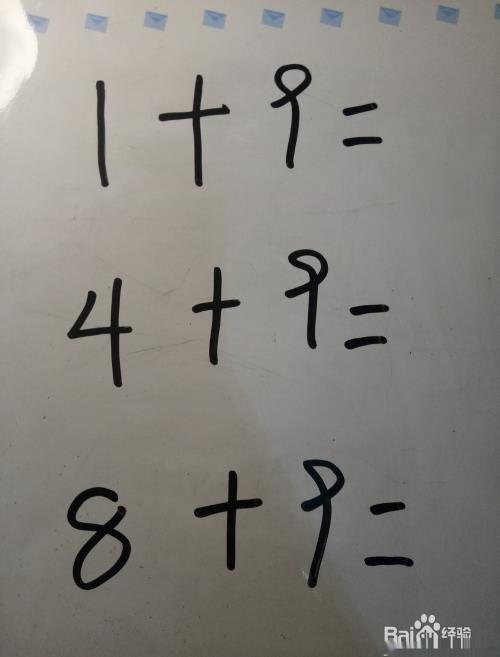 1+9=
4+9=
8+9=
Bai 经验